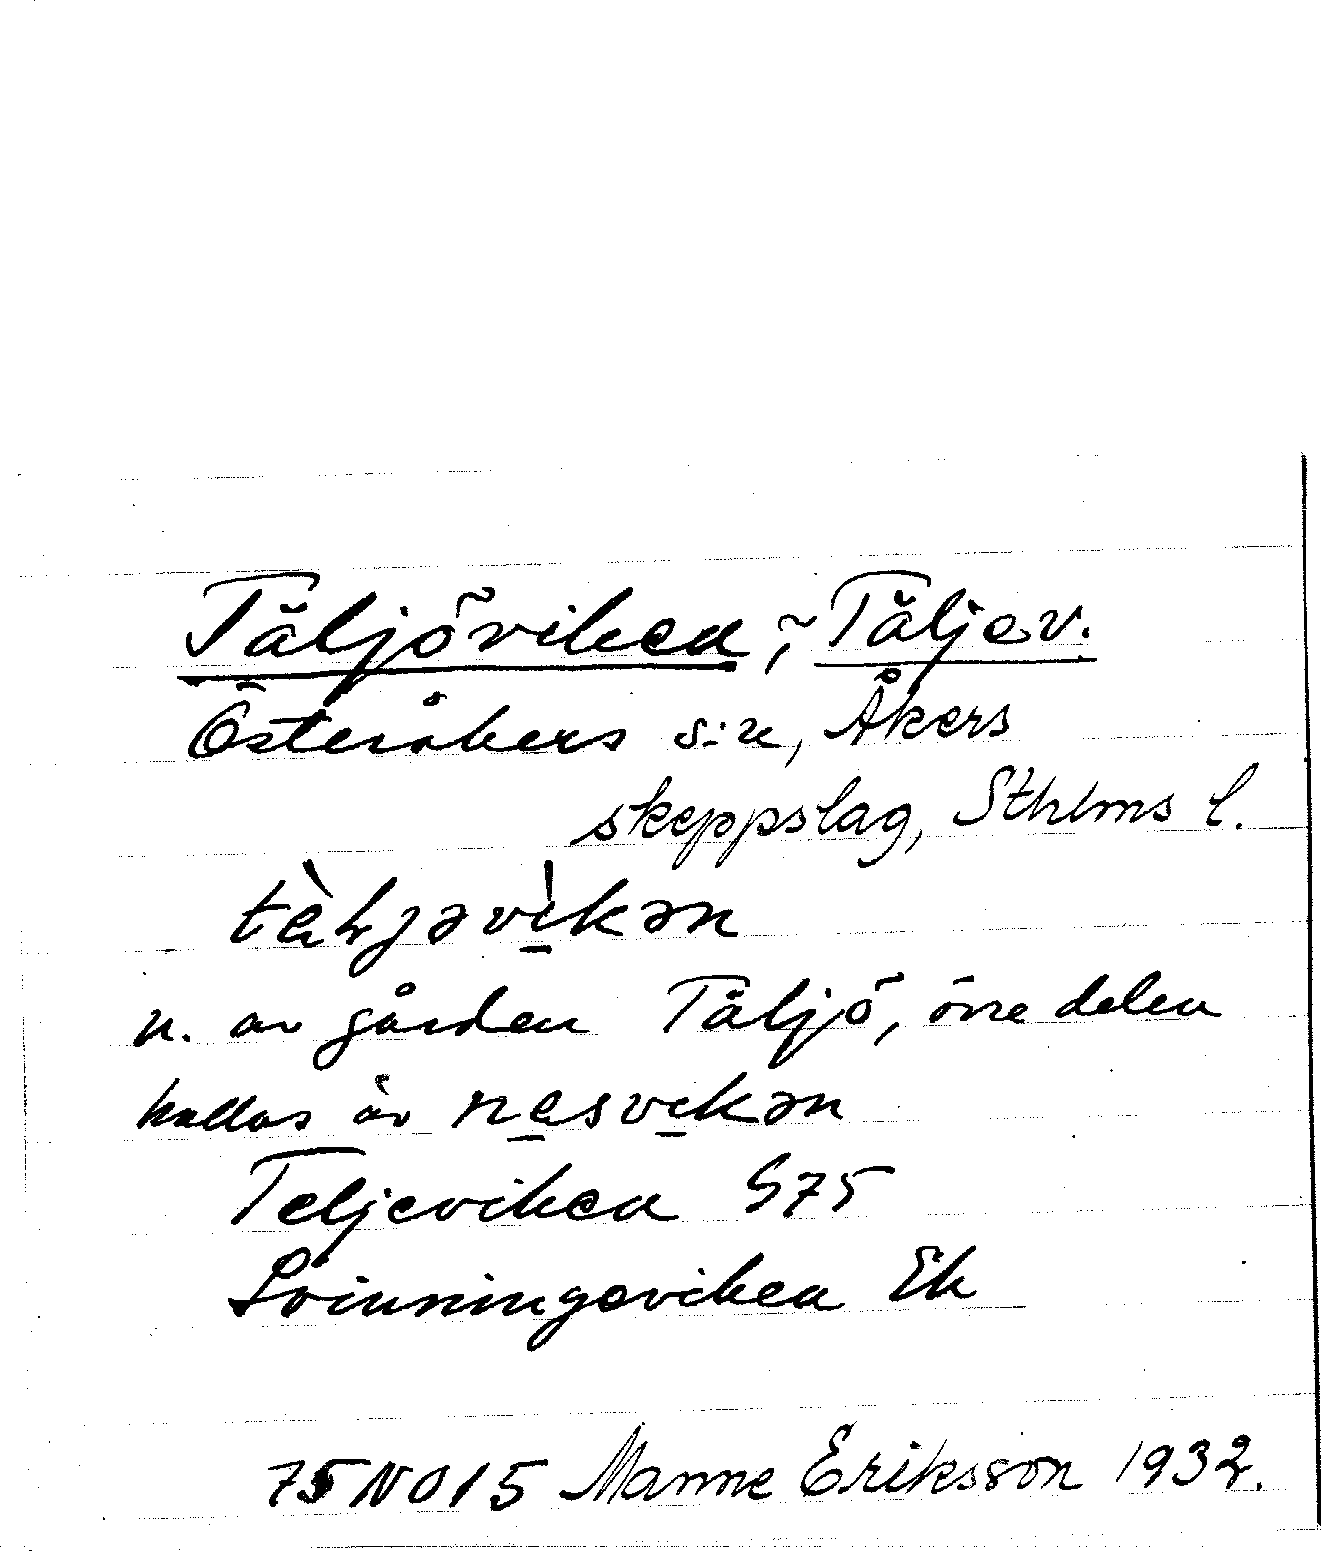 Täljöviken, ~ Täljev.
Österåkers s:n, Åkers
skeppslag, Sthlms l.
tèljəvìkən
n. av gården Täljö, övre delen
kallas äv nesvikən
Teljeviken S75
Svinningeviken Ek
75 NO 15 Manne Eriksson 1932.